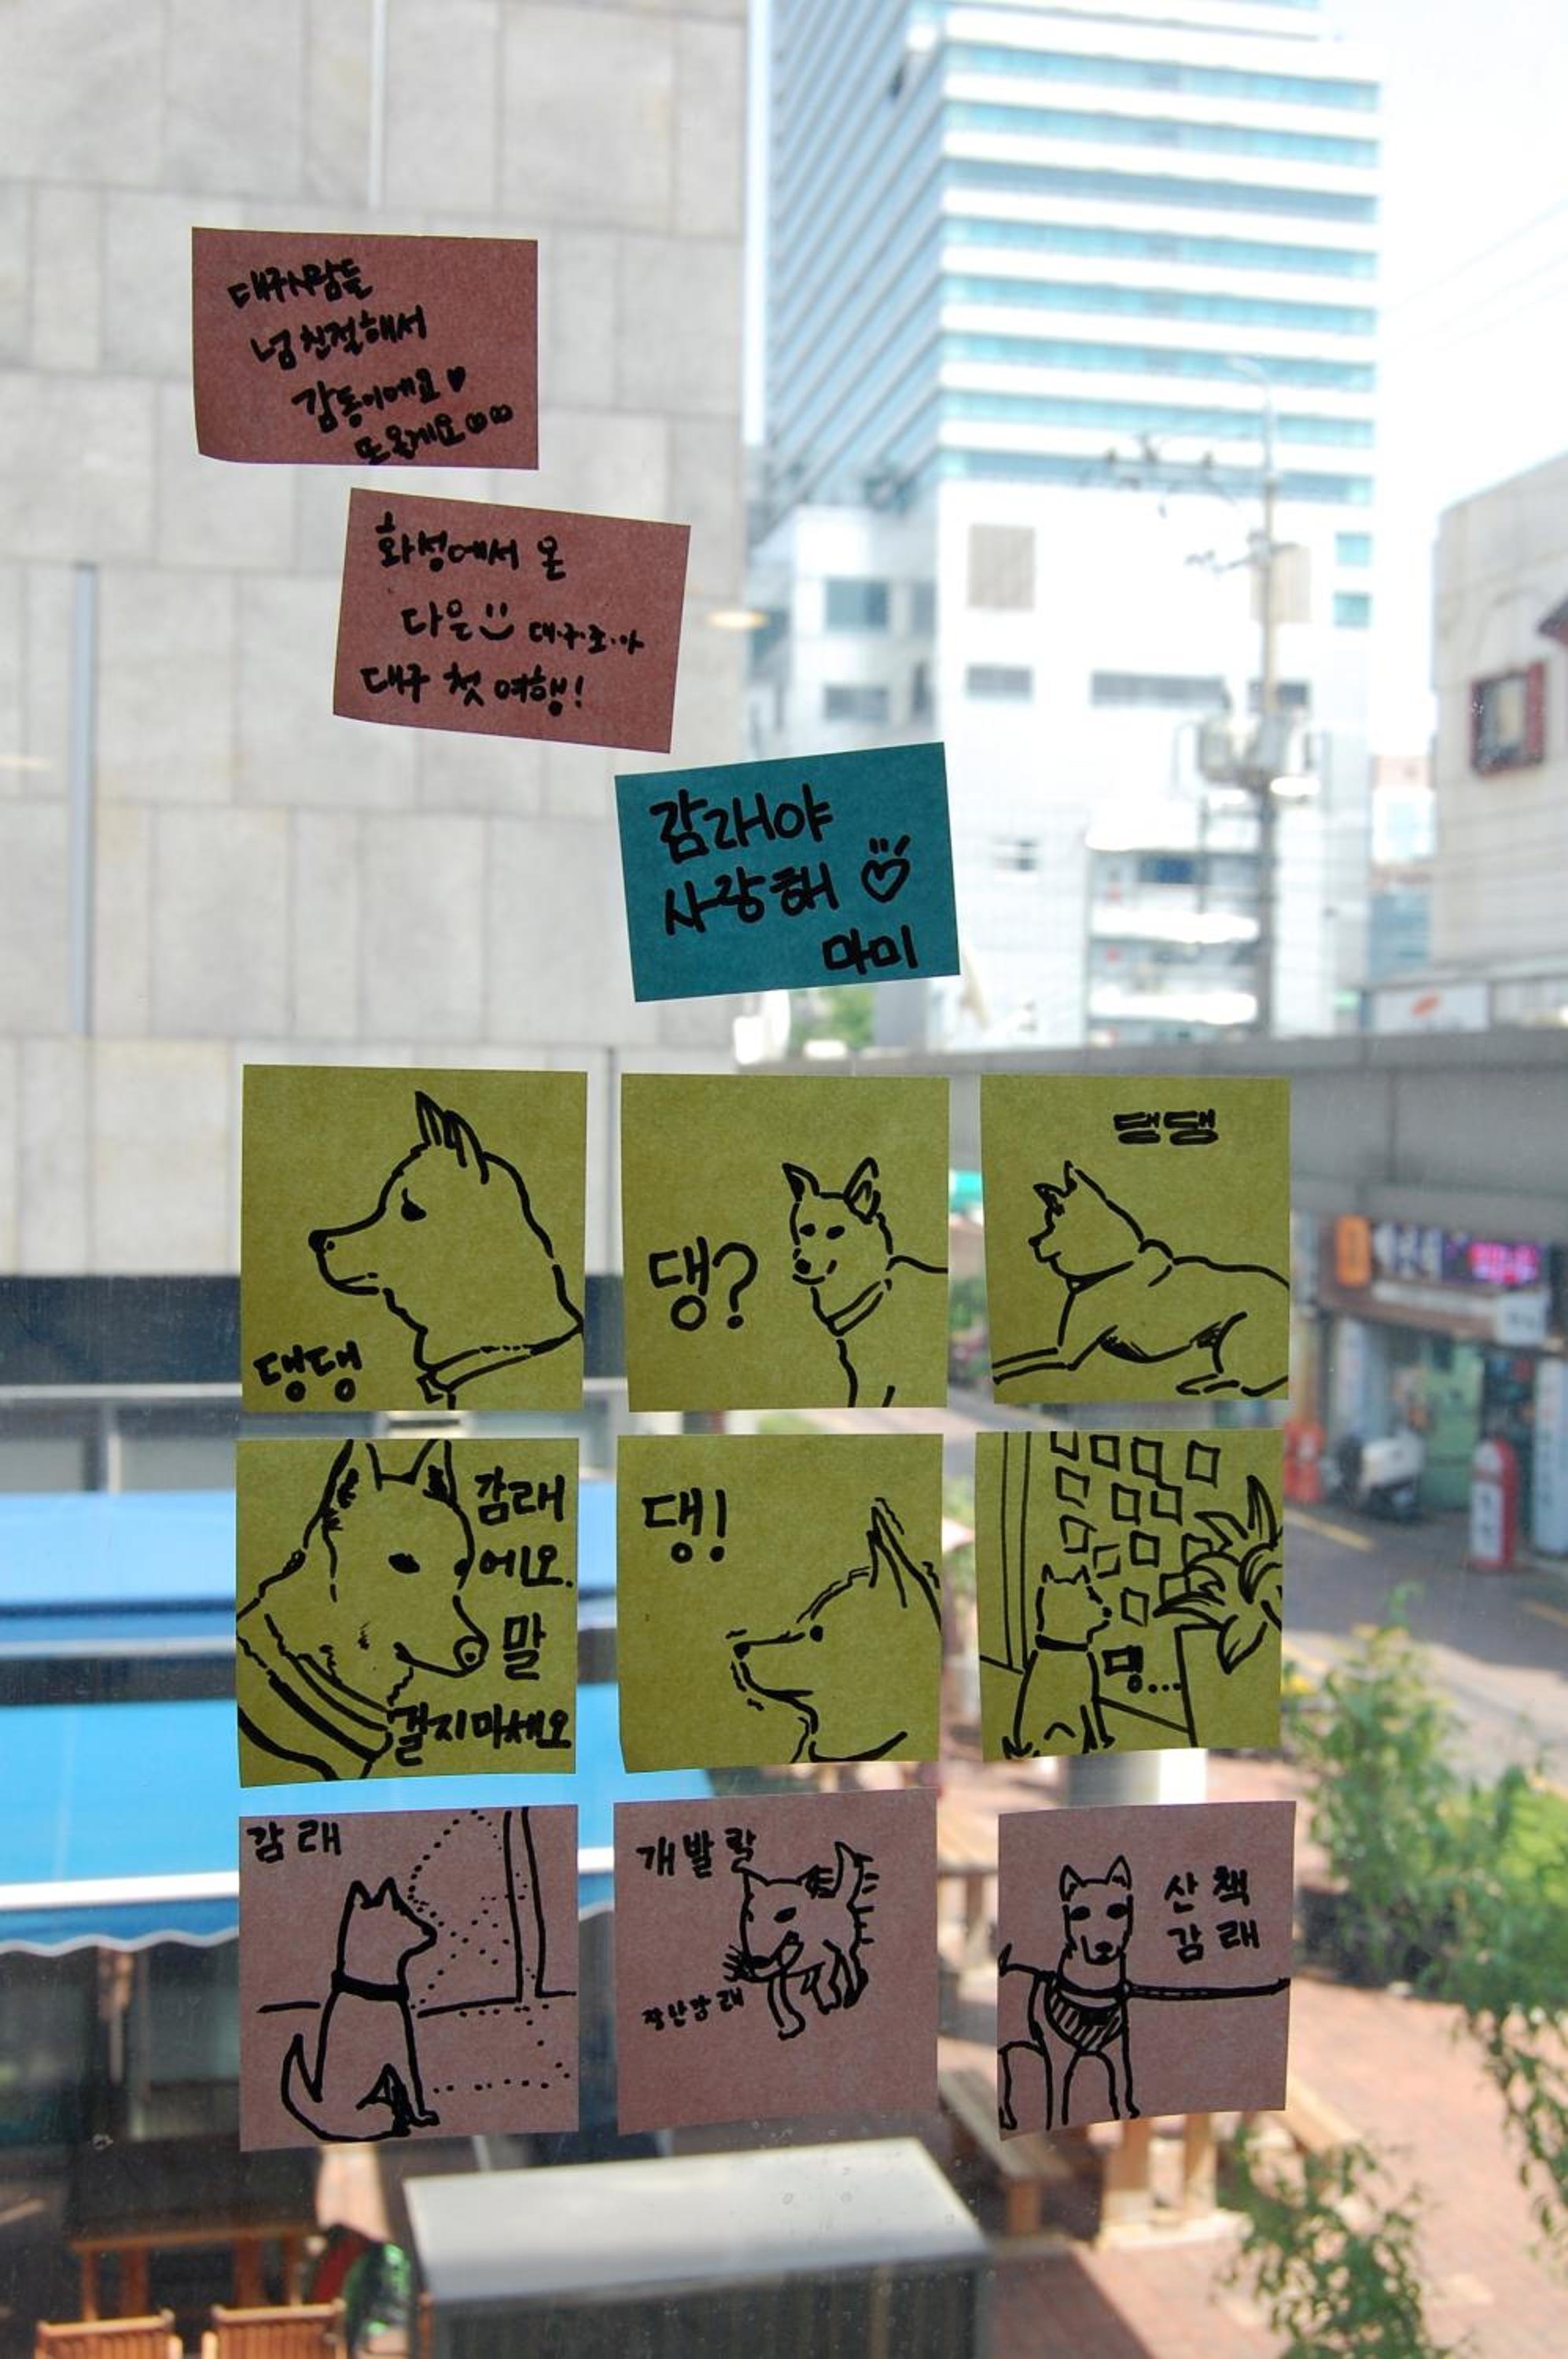 대구사람들
넘 친절해서
감동이에요♥
또 올게요
화성에서 온
다은 대구조아
대구 첫 여행!
감래야
사랑해
마미
댕댕
댕?
댕댕
감래
에요.
말
걸지마세요
댕!
멍...
감래
개발랄
장난감래
산책
감래